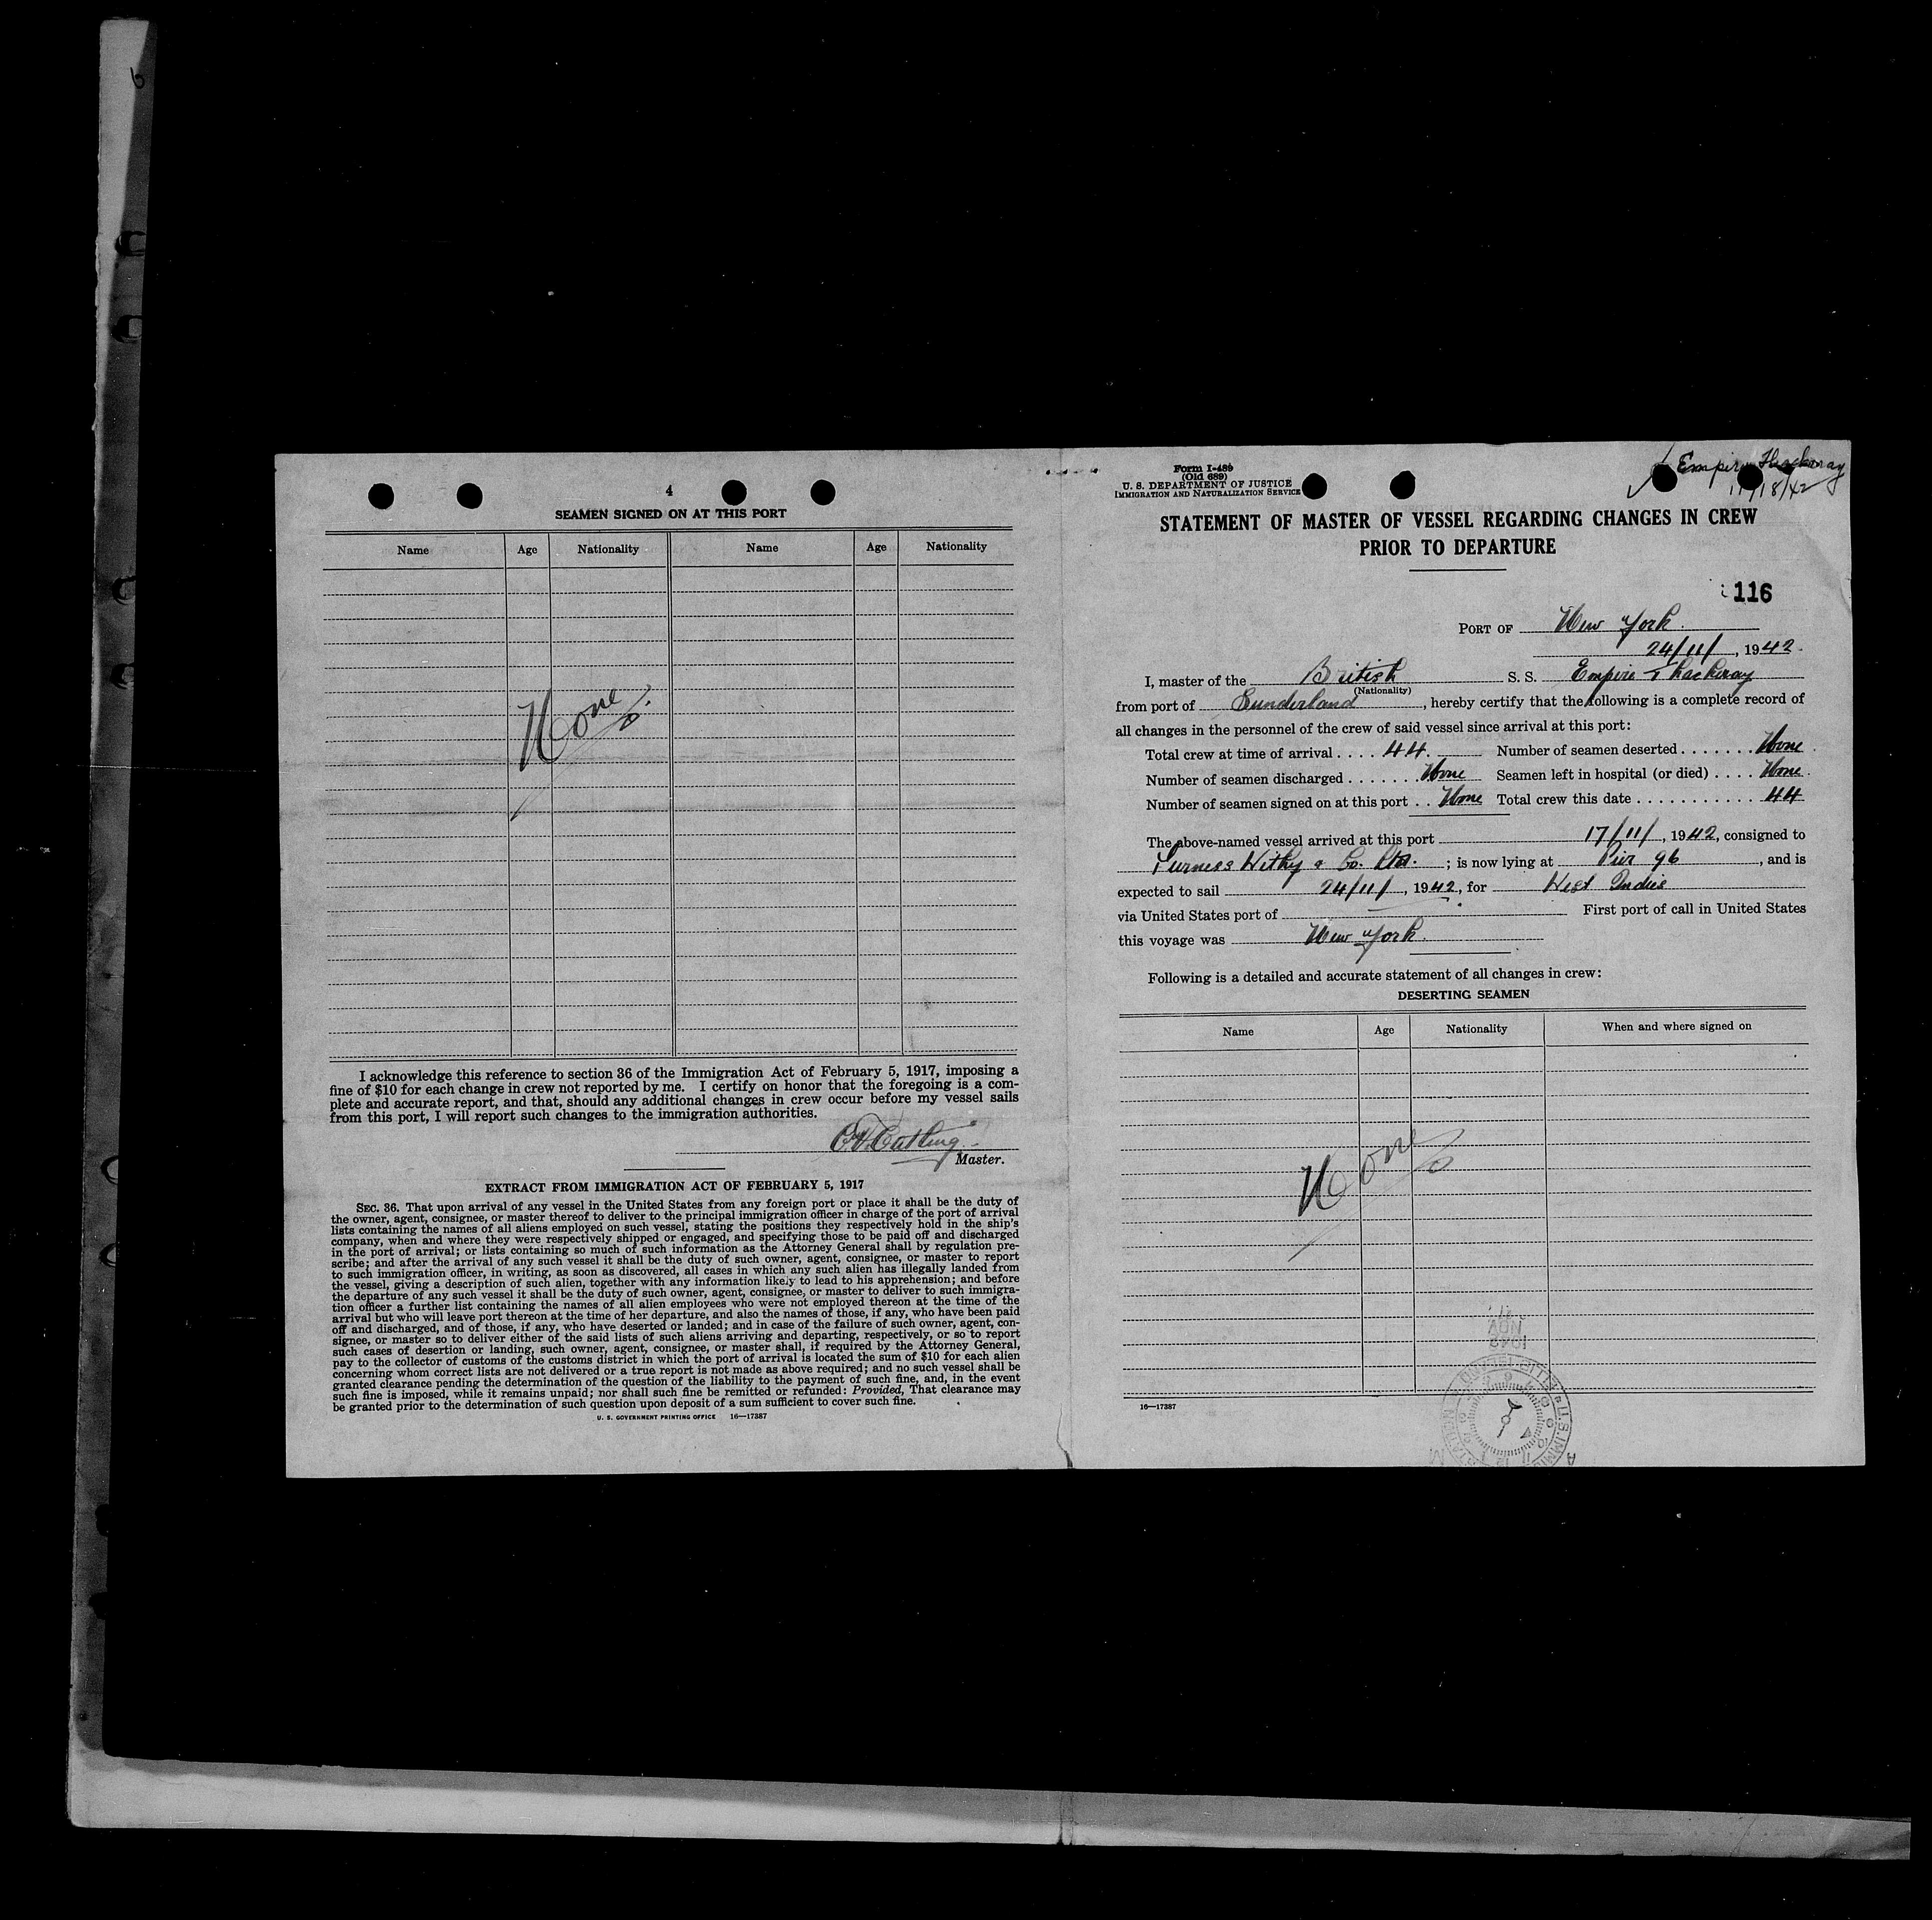 4
SEAMEN SIGNED ON AT THIS PORT
Name Age Nationality Name Age Nationality
None
I acknowledge this reference to section 36 of the Immigration Act of February 5, 1917, imposing a
fine of $10 for each change in crew not reported by me. I certify on honor that the foregoing is a com-
plete and accurate report, and that, should any additional changes in crew occur before my vessel sails
from this port, I will report such changes to the immigration authorities.
Catling
Master.
EXTRACT FROM IMMIGRATION ACT OF FEBRUARY 5, 1917
SEC. 36. That upon arrival of any vessel in the United States from any foreign port or place it shall be the duty of
the owner, agent, consignee, or master thereof to deliver to the principal immigration officer in charge of the port of arrival
lists containing the names of all aliens employed on such vessel, stating the positions they respectively hold in the ship's
company, when and where they were respectively shipped or engaged, and specifying those to be paid off and discharged
in the port of arrival; or lists containing so much of such information as the Attorney General shall by regulation pre-
scribe; and after the arrival of any such vessel it shall be the duty of such owner, agent, consignee, or master to report
to such immigration officer, in writing, as soon as discovered, all cases in which any such alien has illegally landed from
the vessel, giving a description of such alien, together with any information likely to lead to his apprehension; and before
the departure of any such vessel it shall be the duty of such owner, agent, consignee, or master to deliver to such immigra-
tion officer a further list containing the names of all alien employees who were not employed thereon at the time of the
arrival but who will leave port thereon at the time of her departure, and also the names of those, if any, who have been paid
off and discharged, and of those, if any, who have deserted or landed; and in case of the failure of such owner, agent, con-
signee, or master so to deliver either of the said lists of such aliens arriving and departing, respectively, or so to report
such cases of desertion or landing, such owner, agent, consignee, or master shall, if required by the Attorney General,
pay to the collector of customs of the customs district in which the port of arrival is located the sum of $10 for each alien
concerning whom correct lists are not delivered or a true report is not made as above required; and no such vessel shall be
granted clearance pending the determination of the question of the liability to the payment of such fine, and, in the event
such fine is imposed, while it remains unpaid; nor shall such fine be remitted or refunded: Provided, That clearance may
be granted prior to the determination of such question upon deposit of a sum sufficient to cover such fine.
U. S. GOVERNMENT PRINTING OFFICE 16—17387
Form I-489
(Old 689)
U. S. DEPARTMENT OF JUSTICE
IMMIGRATION AND NATURALIZATION SERVICE
Empire Thackeray
11/18/42
STATEMENT OF MASTER OF VESSEL REGARDING CHANGES IN CREW
PRIOR TO DEPARTURE
116
PORT OF New York.
24/11/, 1942.
I, master of the British S. S. Empire Thackeray
(Nationality)
from port of Sunderland, hereby certify that the following is a complete record of
all changes in the personnel of the crew of said vessel since arrival at this port:
Total crew at time of arrival .... 44. Number of seamen deserted ....... None.
Number of seamen discharged ....... None Seamen left in hospital (or died) .... None.
Number of seamen signed on at this port .. None Total crew this date ........... 44
The above-named vessel arrived at this port 17/11/, 1942, consigned to
Furness Withy & Co. Ltd. ; is now lying at Pier 96, and is
expected to sail 24/11/, 1942, for West Indies
via United States port of First port of call in United States
this voyage was New York.
Following is a detailed and accurate statement of all changes in crew:
DESERTING SEAMEN
Name Age Nationality When and where signed on
None
16—17387